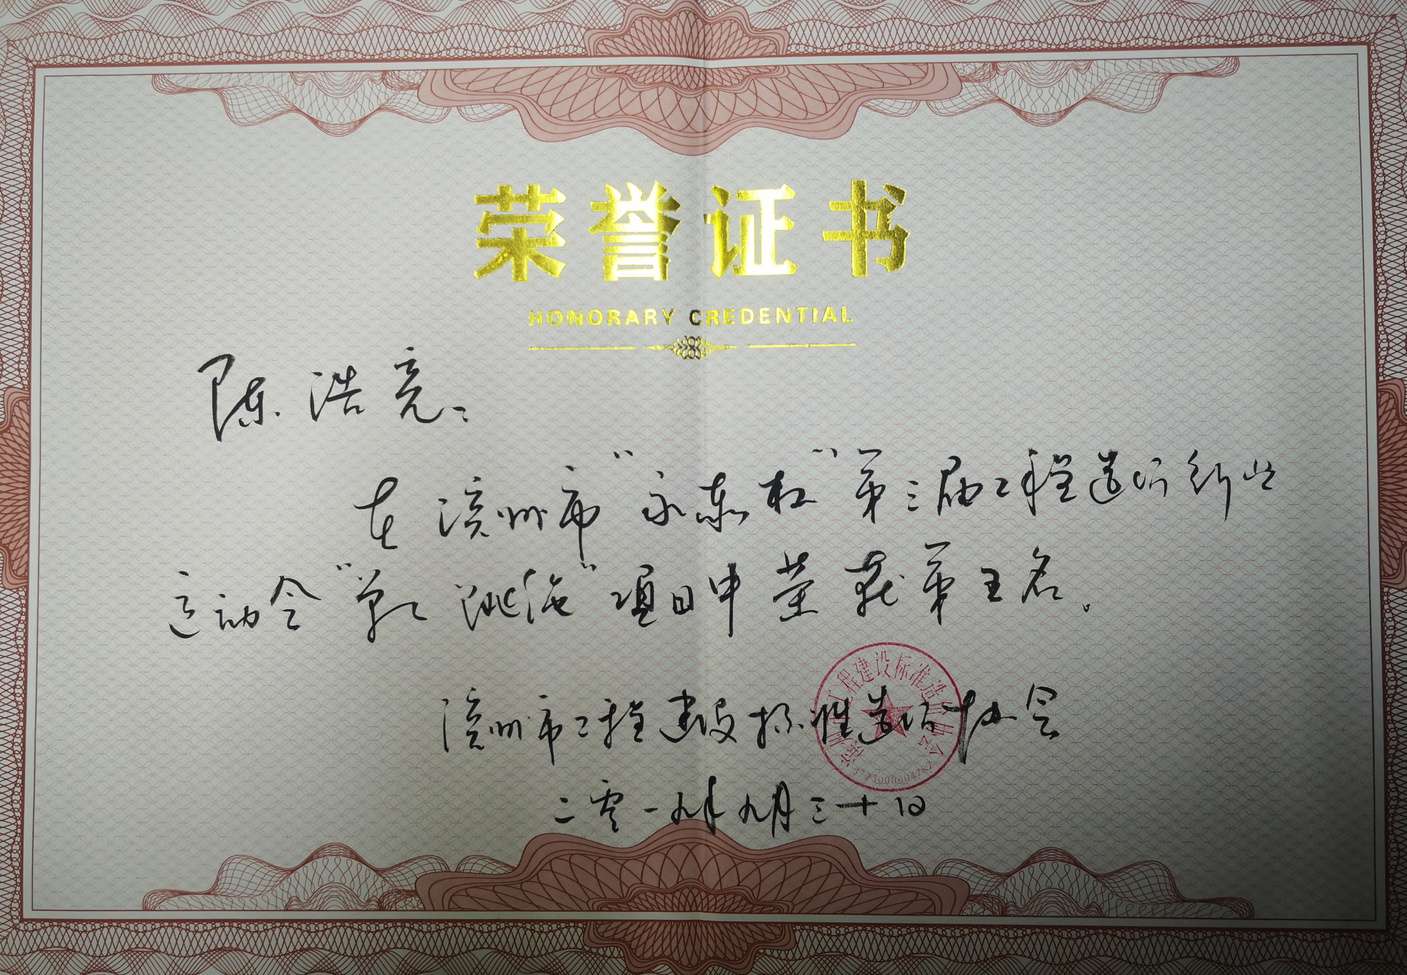 荣誉证书
HONORARY CREDENTIAL
陈浩亮：
在漳州市"永东杯"第三届工程造价行业
运动会"单人跳绳"项目中荣获第五名。
漳州市工程建设标准造价协会
二零一九年九月三十日
漳州市工程建设标准造价协会